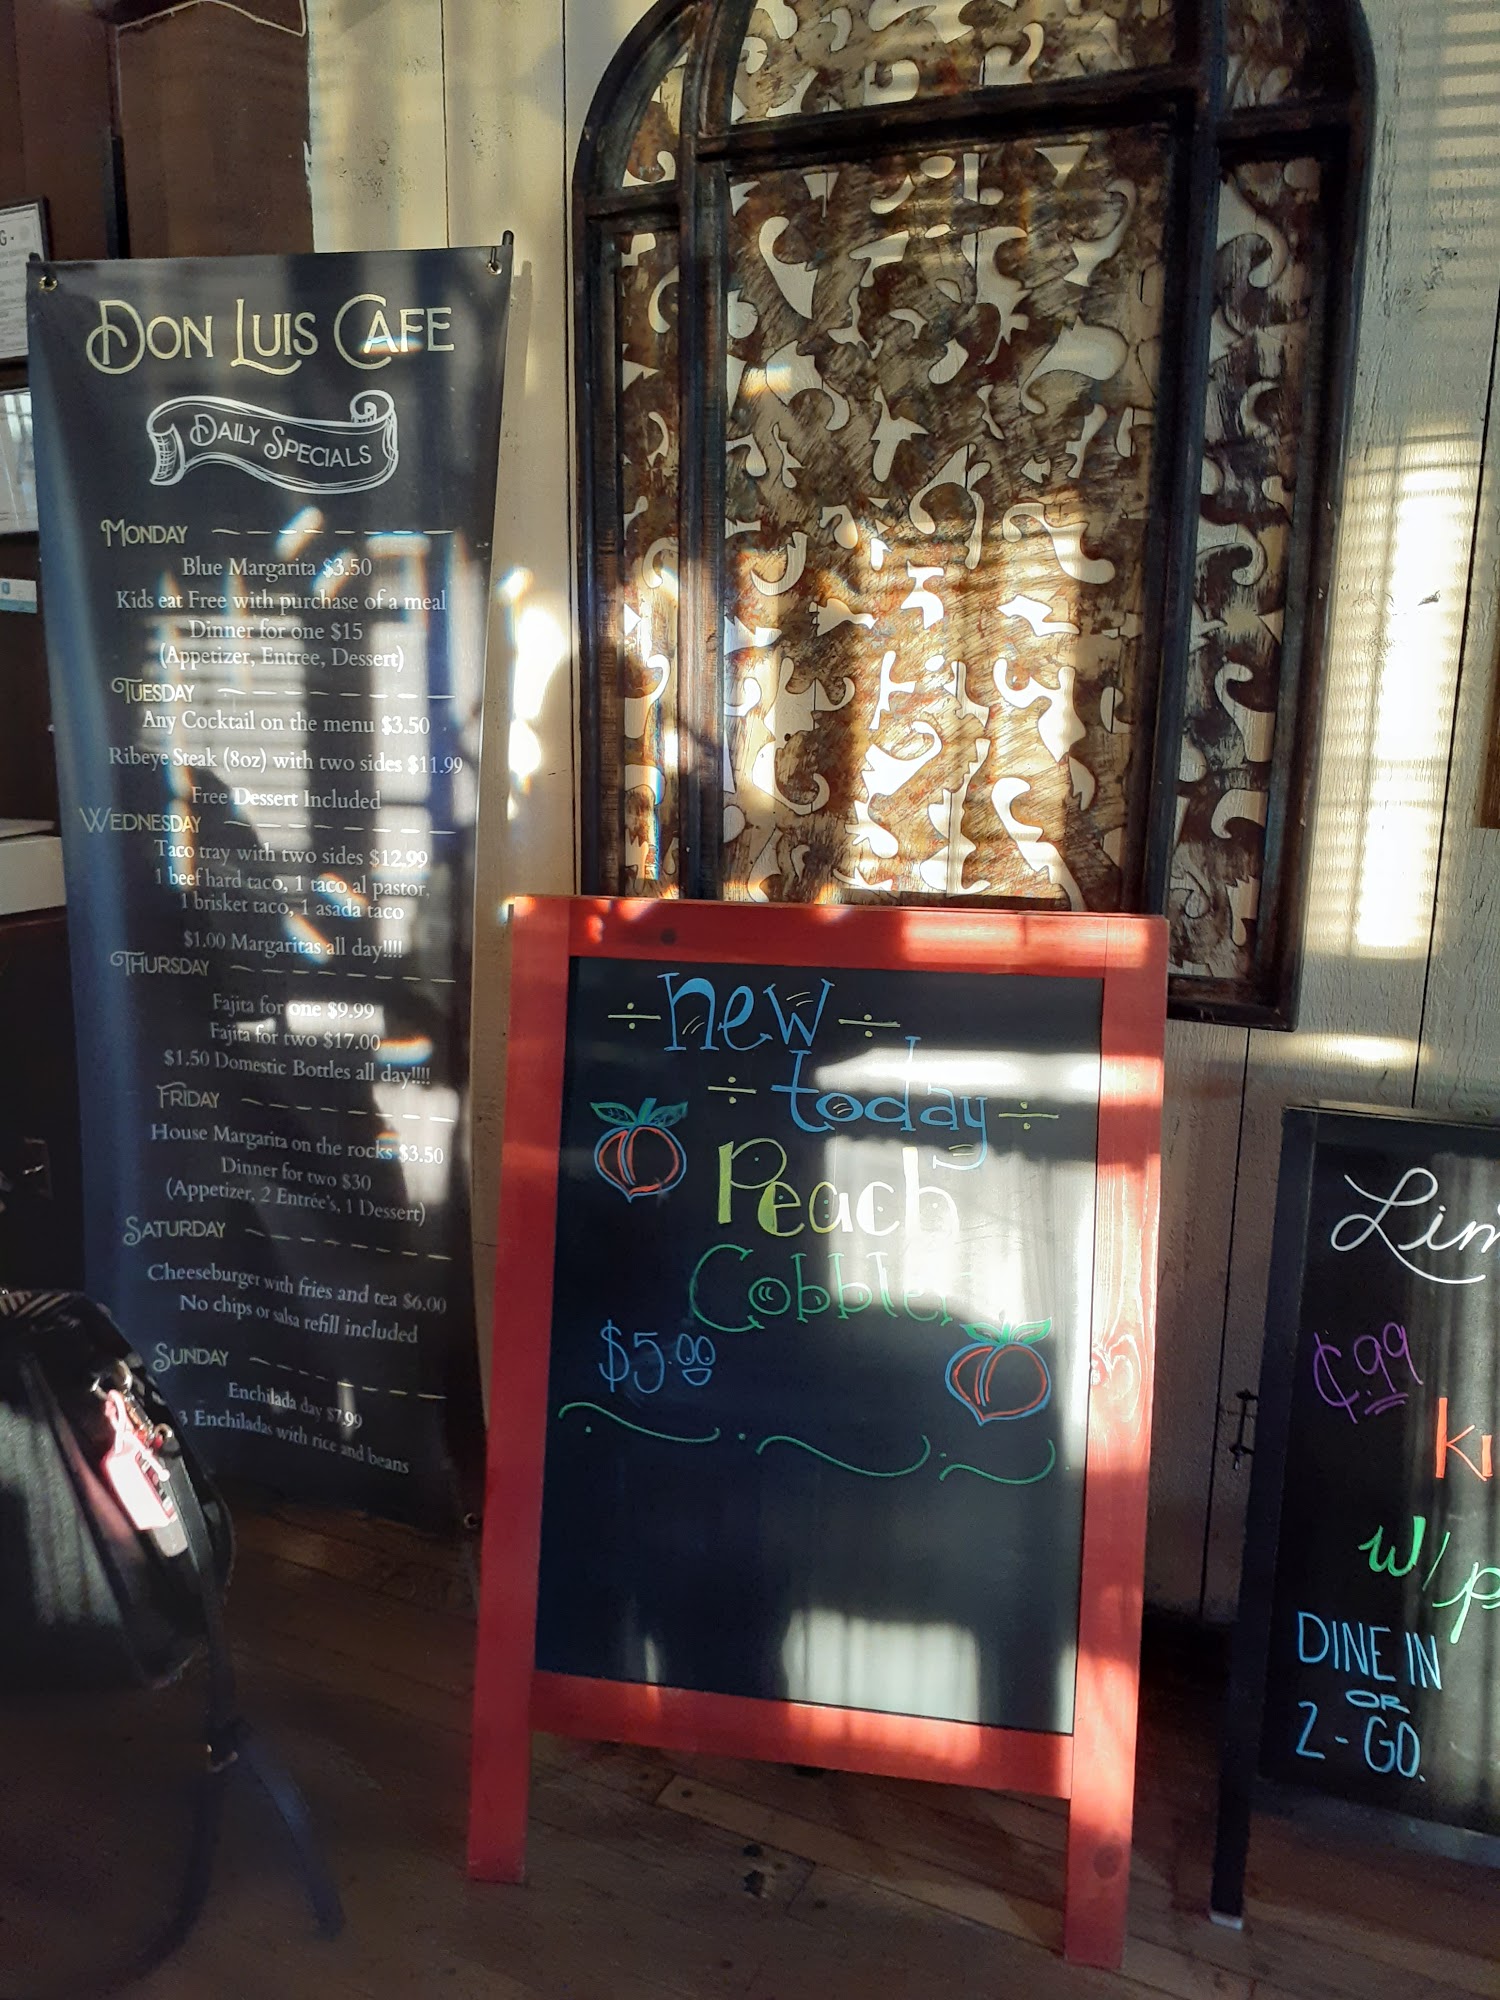 DON LUIS CAFE
DAILY SPECIALS
MONDAY
Blue Margarita $3.50
Kids eat Free with purchase of a meal
Dinner for one $15
(Appetizer, Entree, Dessert)
TUESDAY
Any Cocktail on the menu $3.50
Ribeye Steak (8oz) with two sides $11.99
Free Dessert Included
WEDNESDAY
Taco tray with two sides $12.99
1 beef hard taco, 1 taco al pastor,
1 brisket taco, 1 asada taco
$1.00 Margaritas all day!!!!
THURSDAY
Fajita for one $9.99
Fajita for two $17.00
$1.50 Domestic Bottles all day!!!!
FRIDAY
House Margarita on the rocks $3.50
Dinner for two $30
(Appetizer, 2 Entrée's, 1 Dessert)
SATURDAY
Cheeseburger with fries and tea $6.00
No chips or salsa refill included
SUNDAY
Enchilada day $7.99
3 Enchiladas with rice and beans
new
today
Peach
Cobbler
$5.00
Lim
¢.99
Ki
w/ p
DINE IN
OR
2-GO.